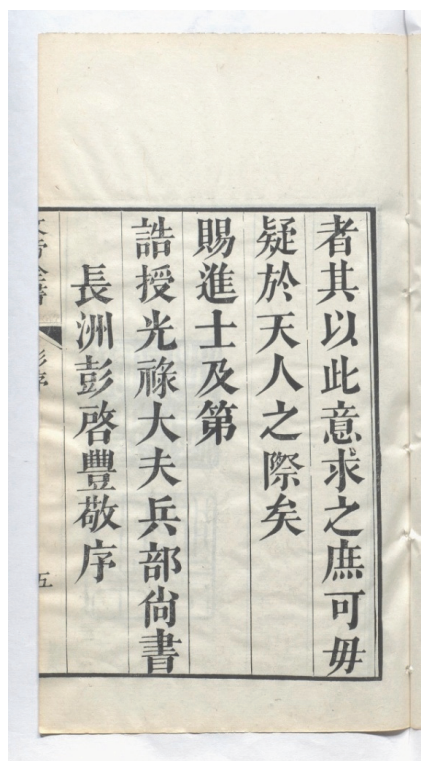 者其以此意求之庶可毋
疑於天人之際矣
賜進士及第
誥授光祿大夫兵部尙書
長洲彭啓豐敬序
彭序
五